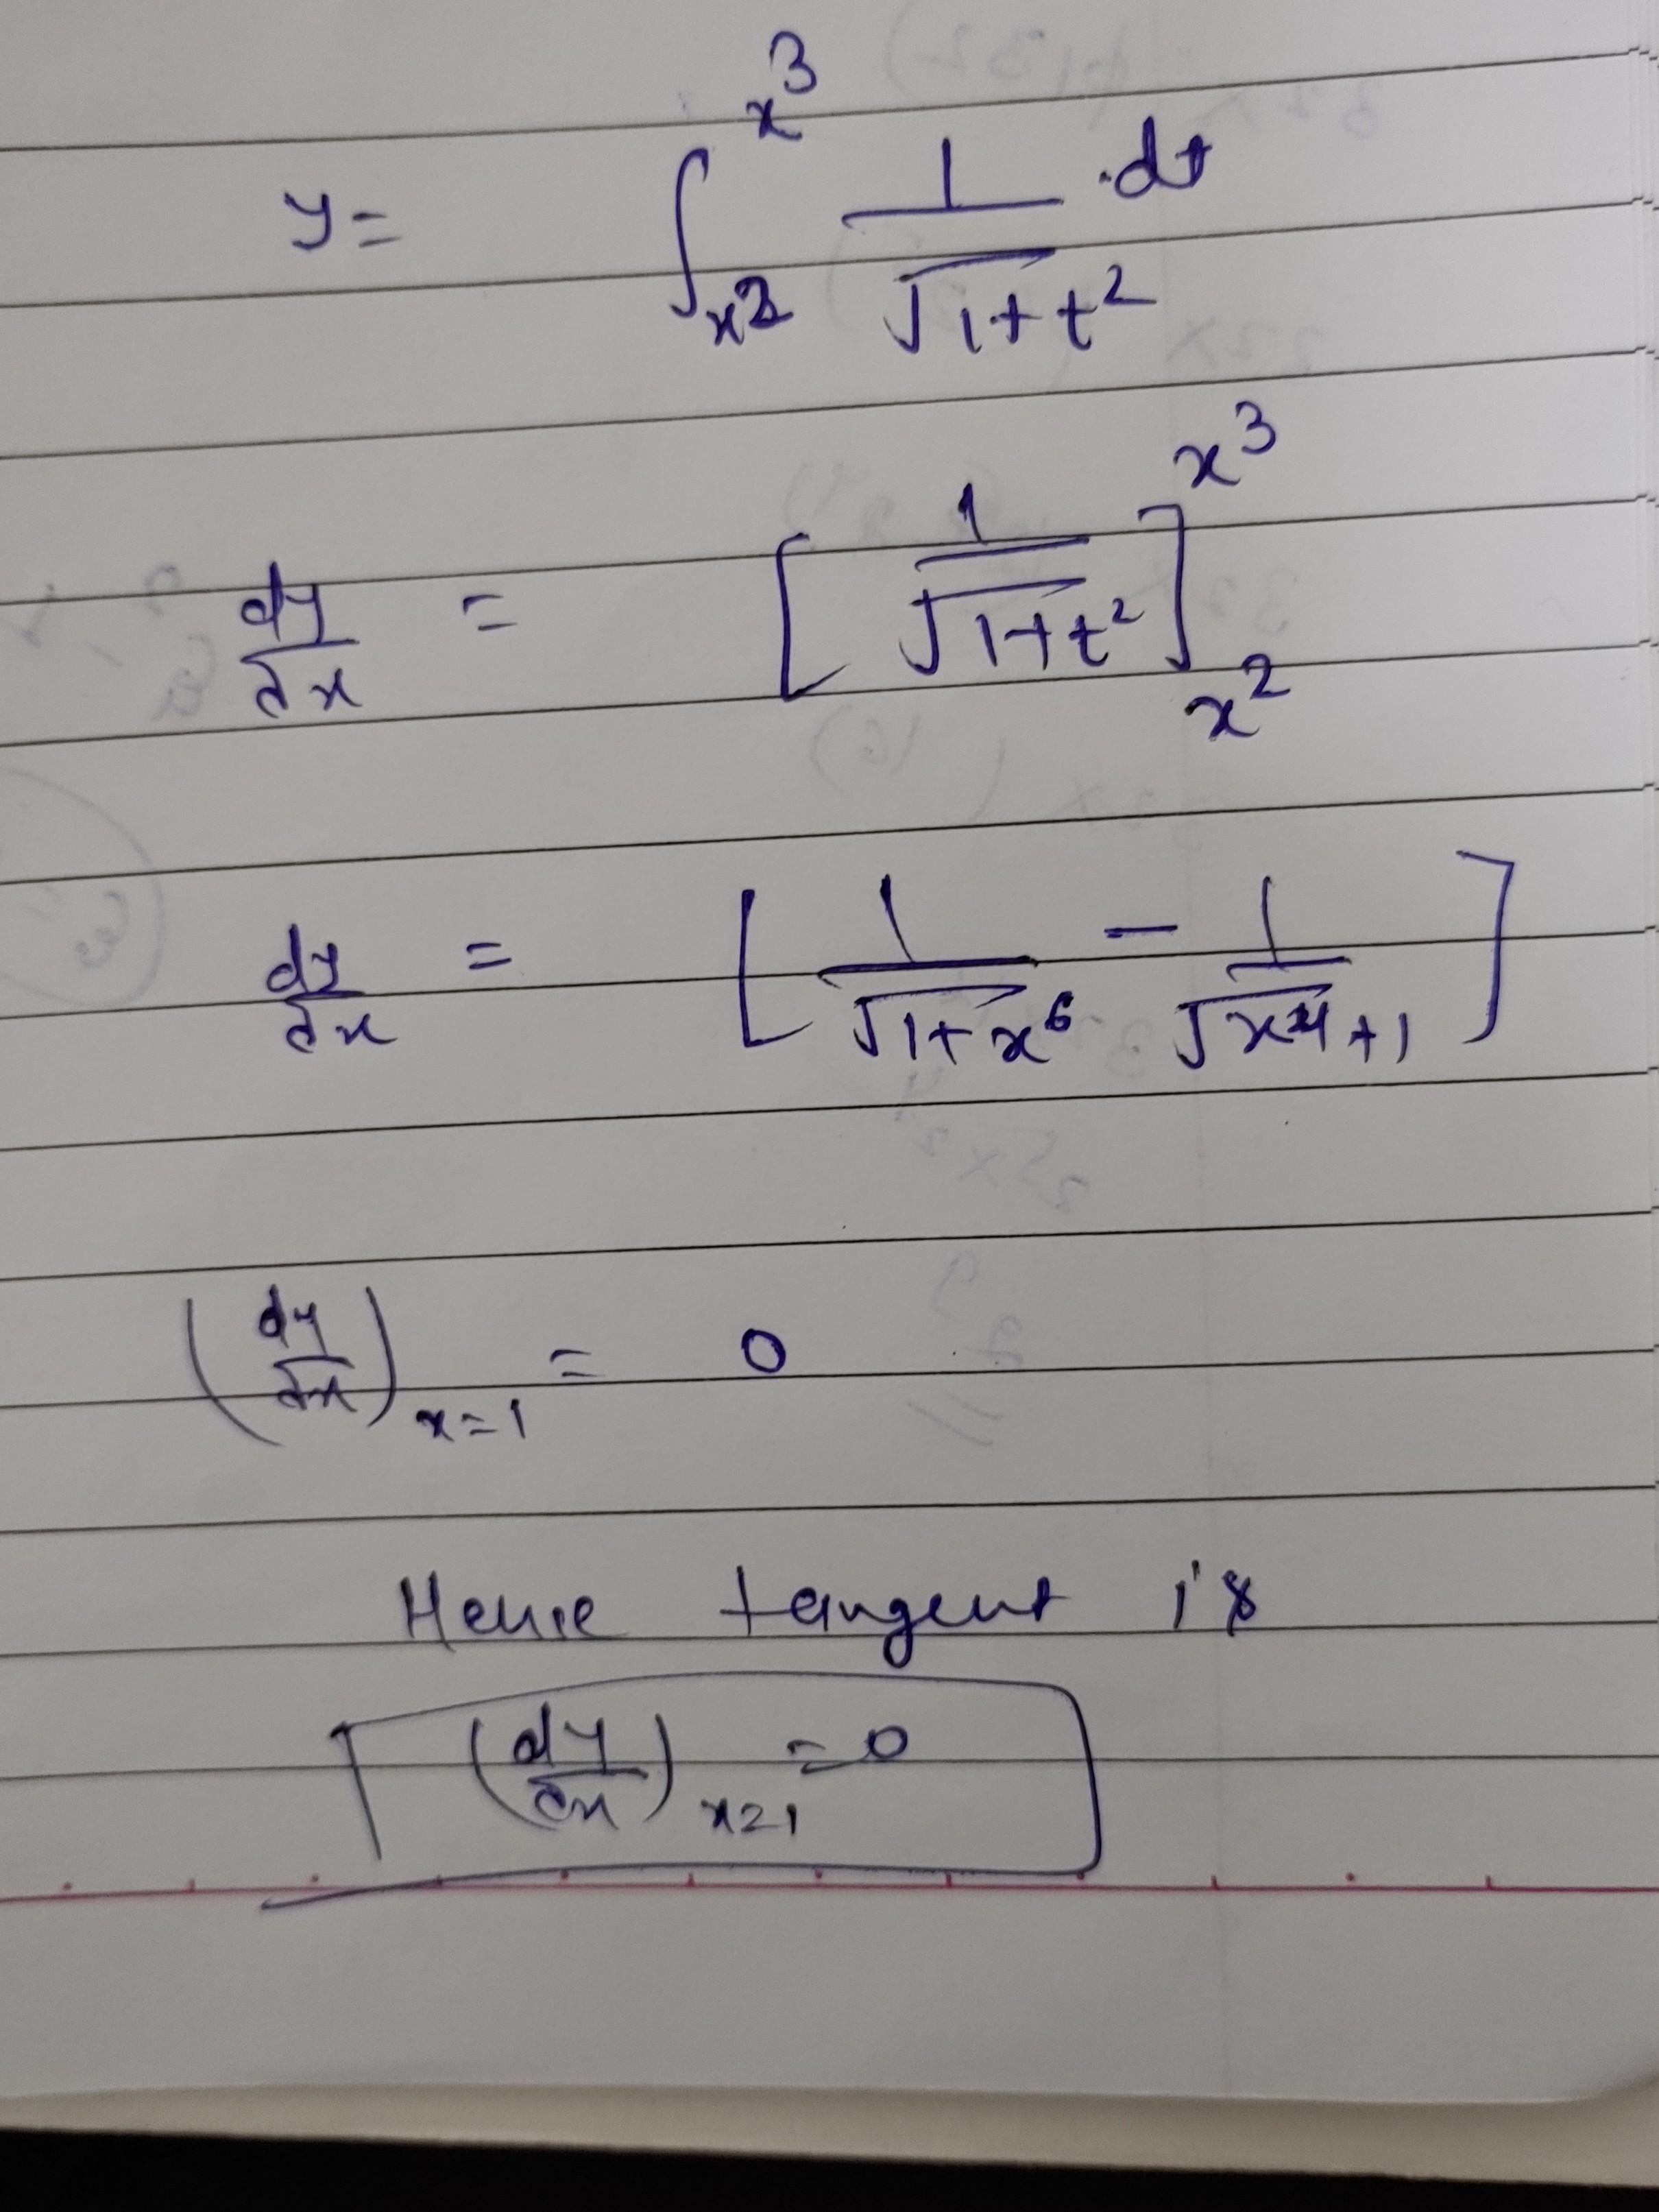 y = ∫_{x^2}^{x^3} 1/√(1+t^2) .dt
dy/dx = [1/√(1+t^2)]_{x^2}^{x^3}
dy/dx = [1/√(1+x^6) − 1/√(x^4+1)]
(dy/dx)_{x=1} = 0
Hence tangent is
(dy/dx)_{x=1} = 0